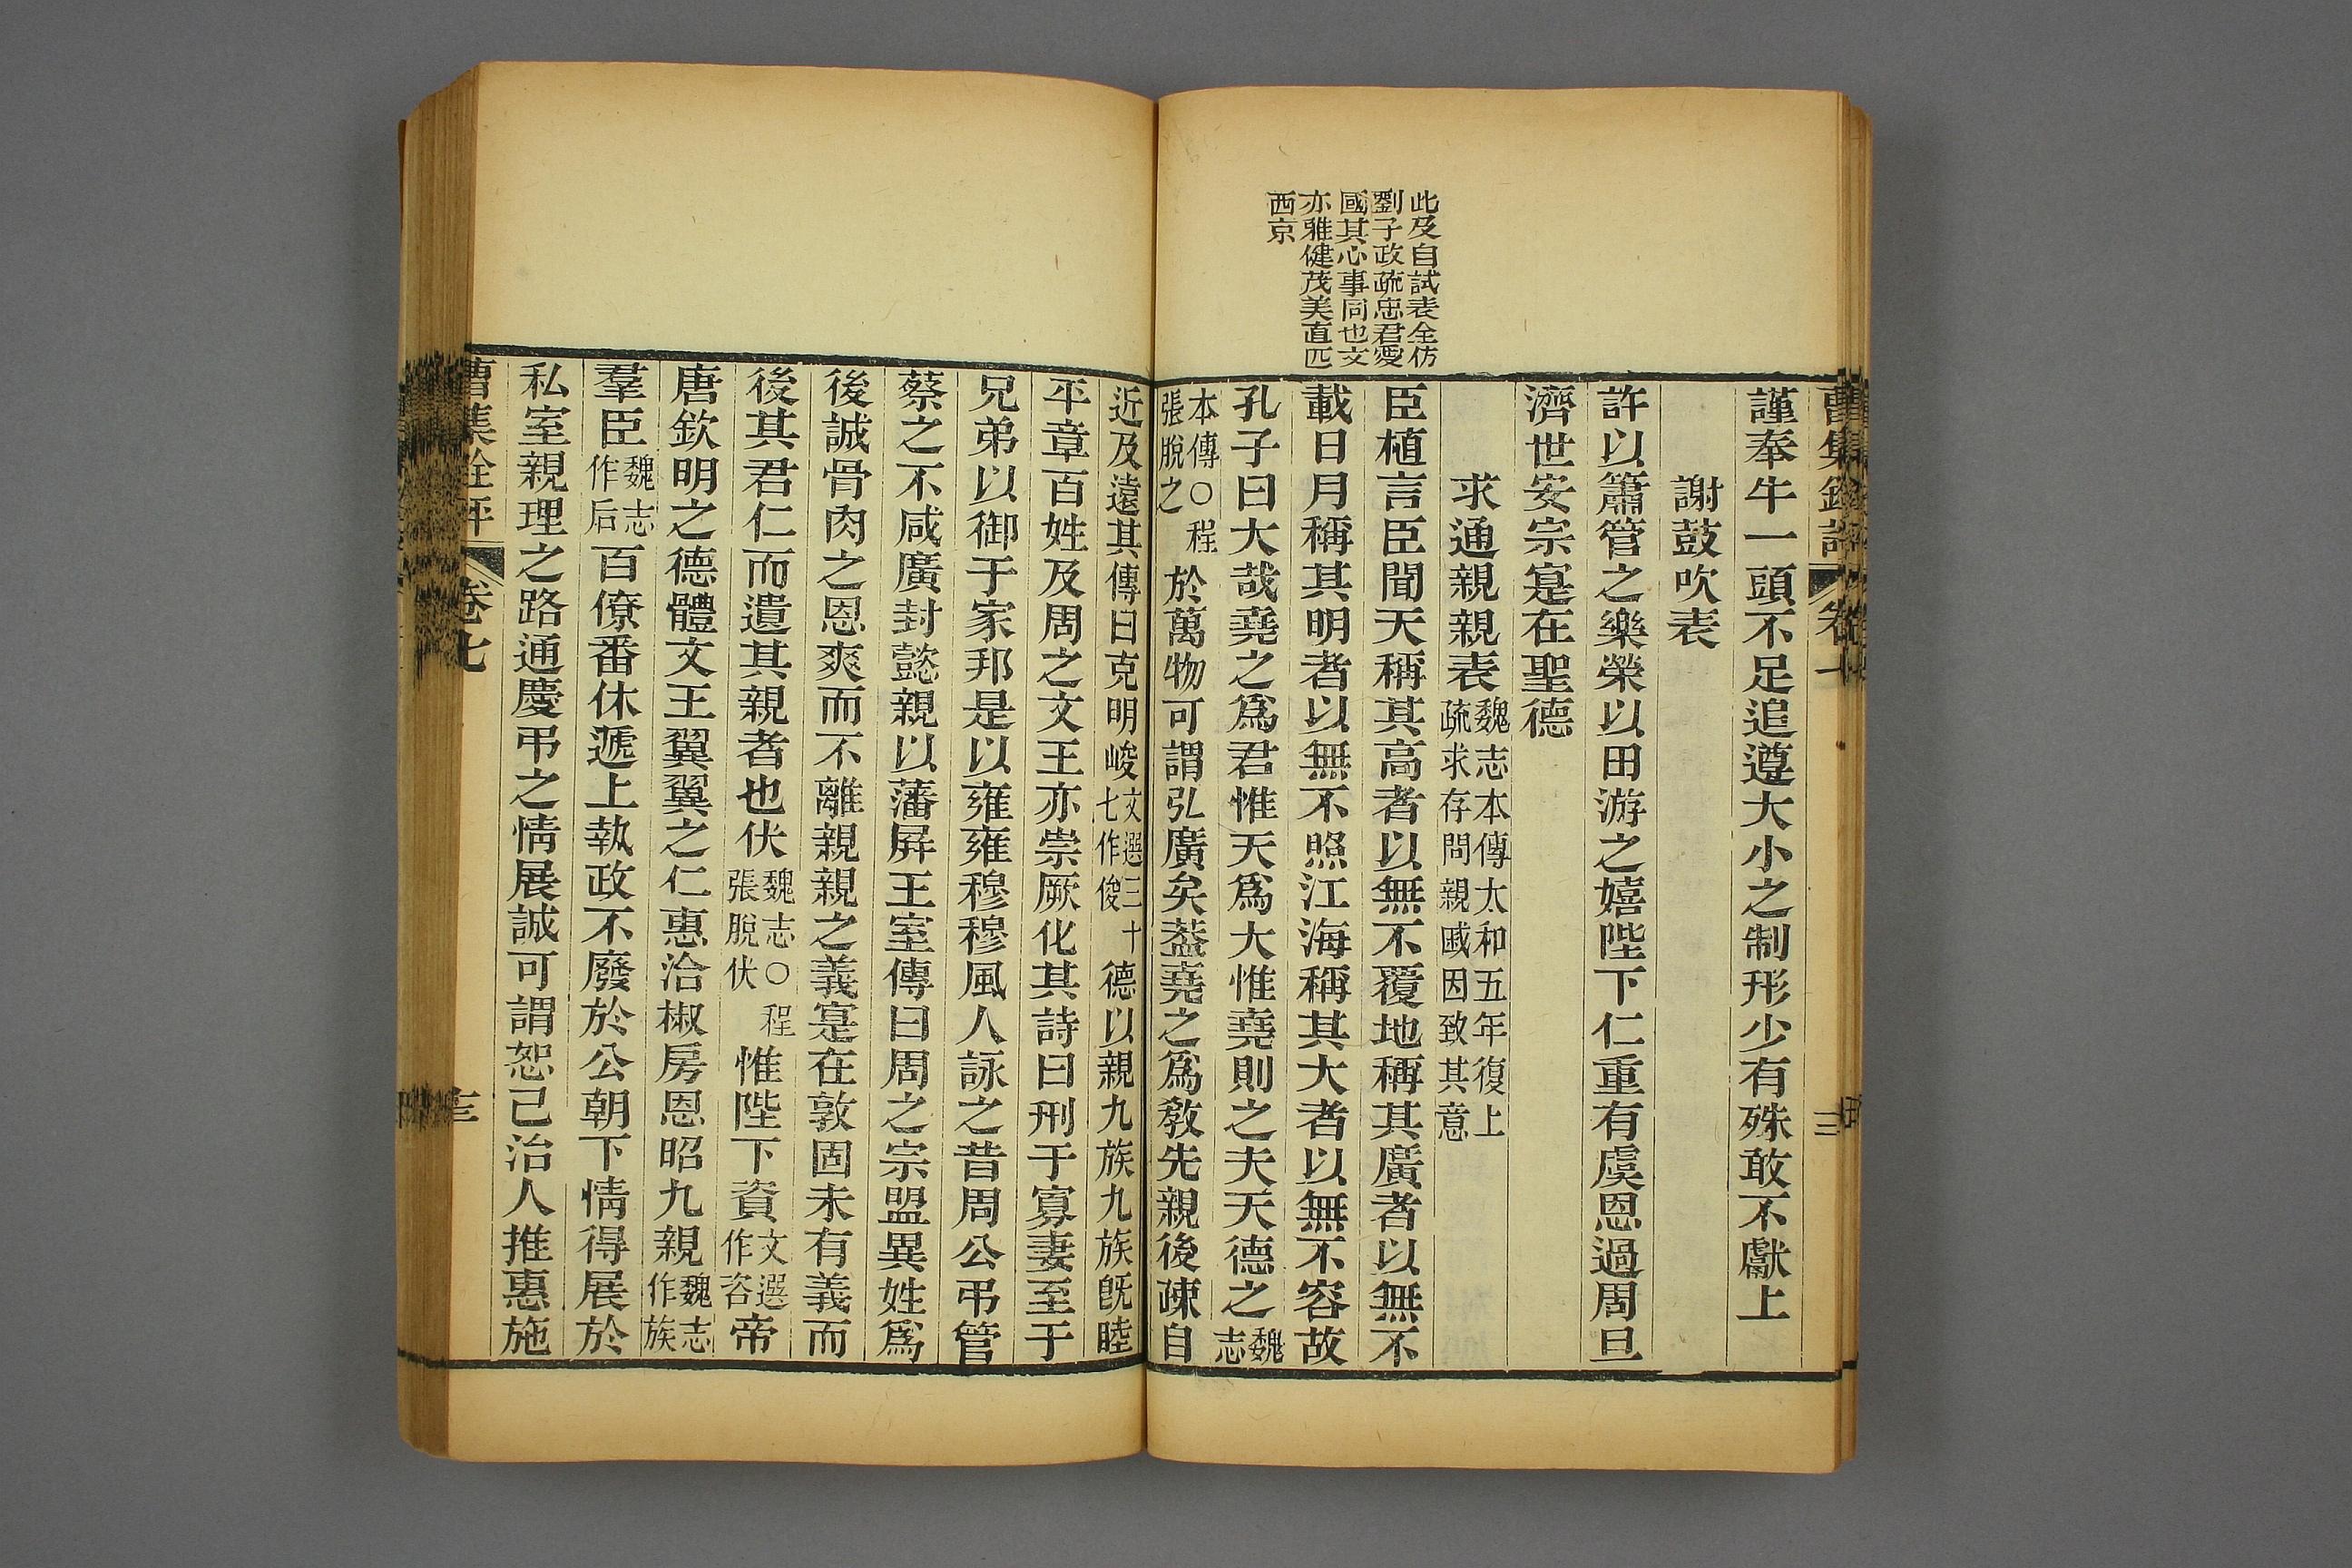 曹集銓評 卷七
三
謹奉牛一頭不足追遵大小之制形少有殊敢不獻上
謝鼓吹表
許以簫管之樂榮以田游之嬉陛下仁重有虞恩過周旦
濟世安宗寔在聖德
求通親親表魏志本傳太和五年復上疏求存問親戚因致其意
此及自試表全仿
劉子政疏忠君愛
國其心事同也文
亦雅健茂美直匹
西京
臣植言臣聞天稱其高者以無不覆地稱其廣者以無不
載日月稱其明者以無不照江海稱其大者以無不容故
孔子曰大哉堯之爲君惟天爲大惟堯則之夫天德之魏志
本傳○程張脫之於萬物可謂弘廣矣葢堯之爲敎先親後疎自
近及遠其傳曰克明峻文選三十七作俊德以親九族九族旣睦
平章百姓及周之文王亦崇厥化其詩曰刑于寡妻至于
兄弟以御于家邦是以雍雍穆穆風人詠之昔周公弔管
蔡之不咸廣封懿親以藩屛王室傳曰周之宗盟異姓爲
後誠骨肉之恩爽而不離親親之義寔在敦固未有義而
後其君仁而遺其親者也伏魏志○程張脫伏惟陛下資文選作咨帝
唐欽明之德體文王翼翼之仁惠洽椒房恩昭九親魏志作族
羣臣魏志作后百僚番休遞上執政不廢於公朝下情得展於
私室親理之路通慶弔之情展誠可謂恕己治人推惠施
曹集銓評 卷七